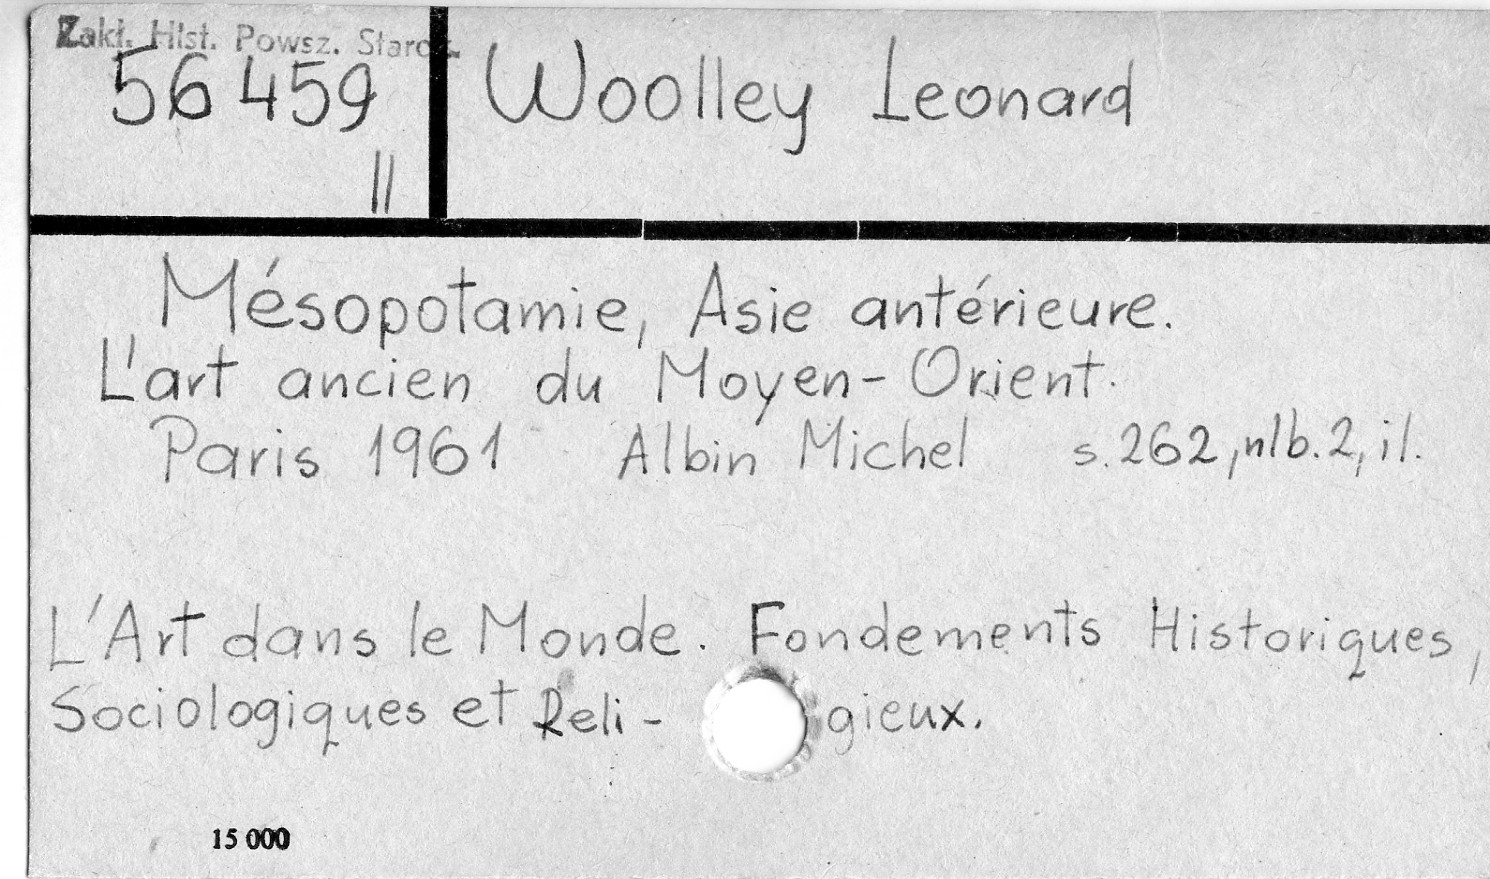 Zakł. Hist. Powsz. Staroż.
56 459
II
Woolley Leonard
Mésopotamie, Asie antérieure.
L'art ancien du Moyen-Orient.
Paris 1961 Albin Michel s. 262, nlb. 2, il.
L'Art dans le Monde. Fondements Historiques,
Sociologiques et Reli- gieux.
15 000